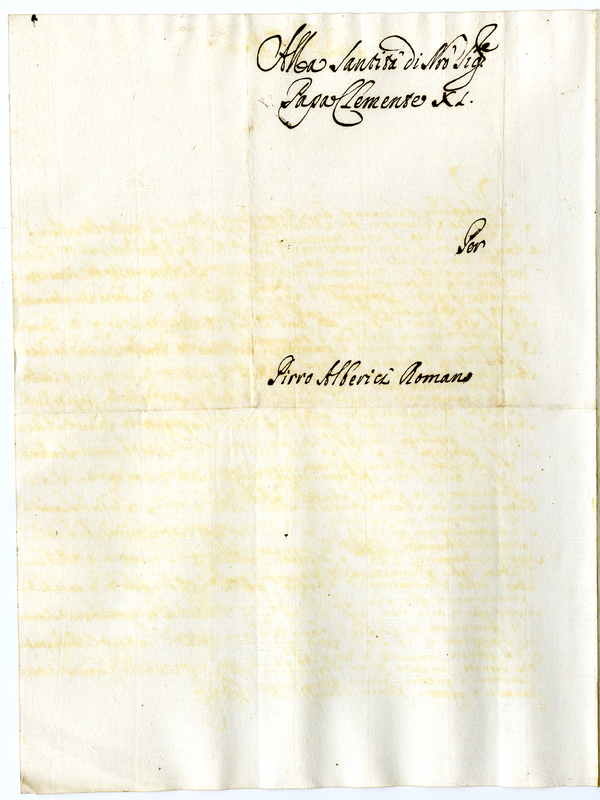 Alla Santità di Nro Sigre
Papa Clemente XI.
Per
Pirro Alberici Romano